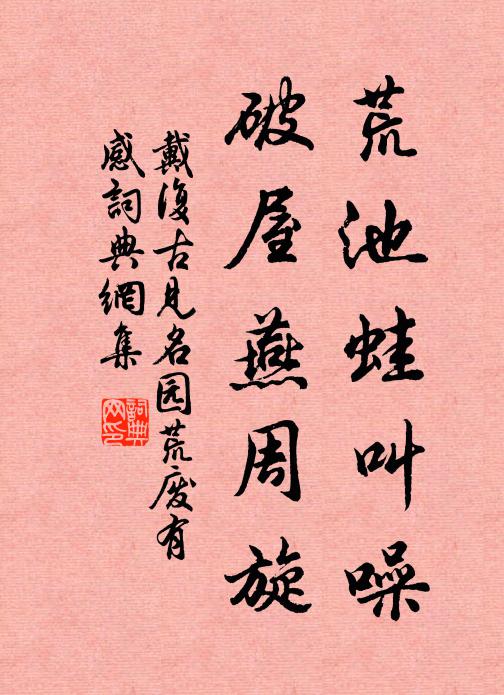 荒池蛙叫噪
破屋燕周旋
戴復古見名园荒废有
感詞典網集
詞典网印